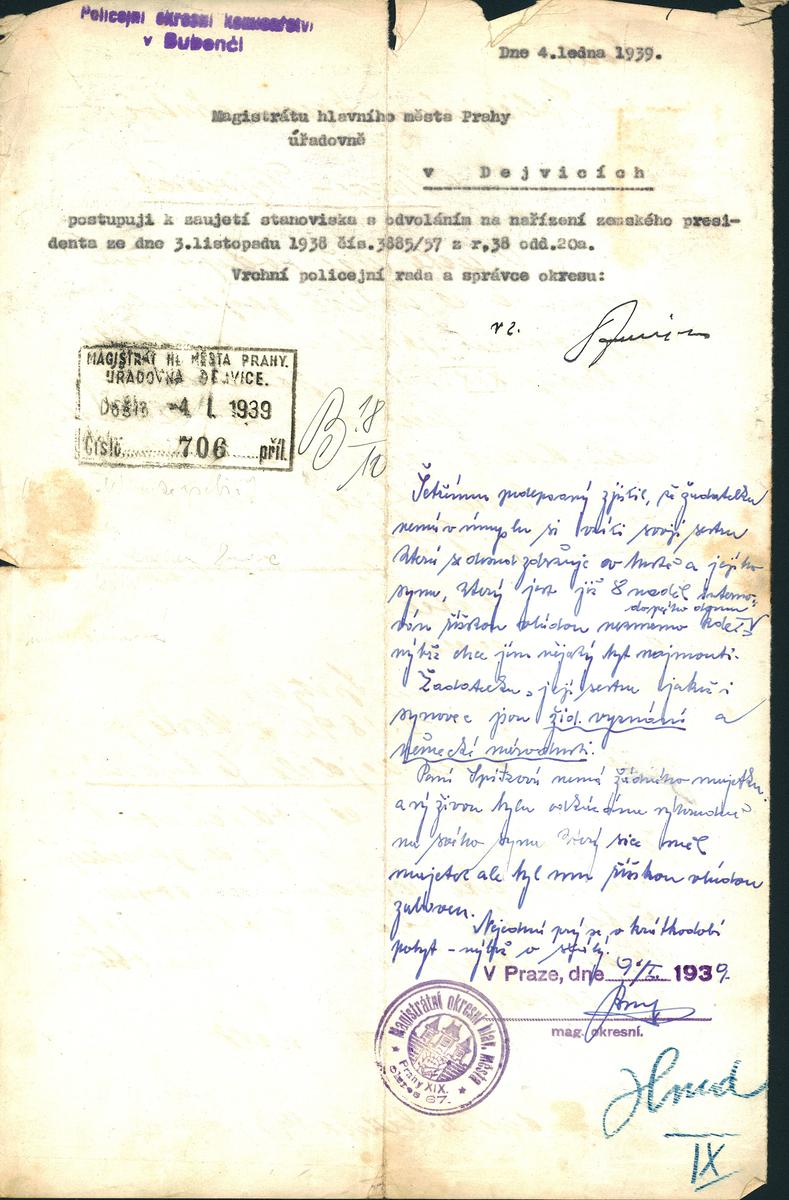 Policejní okresní komisařství
v Bubenči
Dne 4.ledna 1939.
Magistrátu hlavního města Prahy
úřadovně
v Dejvicích
postupuji k zaujetí stanoviska s odvoláním na nařízení zemského presi-
denta ze dne 3.listopadu 1938 čís.3885/57 z r.38 odd.20a.
Vrchní policejní rada a správce okresu:
v z.
MAGISTRÁT HL. MĚSTA PRAHY.
ÚŘADOVNA DEJVICE.
Došlo -4 I. 1939
Číslo 706 příl.
B 18/10
Šetřením podepsaný zjistil, že žadatelka
nemá v úmyslu si vzíti svoji sestru
která se dosud zdržuje ve a jejího
syna, který jest již 8 neděl interno-
ván říšskou vládou neznámo kde do svého domu
nýbrž chce jim nějaký byt najmouti.
Žadatelka, její sestra jakož i
synovec jsou žid. vyznání a
německé národnosti.
Paní Spitzová nemá žádného majetku
a výživou byla odkázána výhradně
na svého syna který sice měl
majetek ale byl mu říšskou vládou
zabaven.
Nejedná prý se o krátkodobí
pobyt - nýbrž o stálý.
V Praze, dne 9./I. 1939.
mag. okresní.
Magistrátní okresní hlav. města
Prahy XIX.
67.
IX